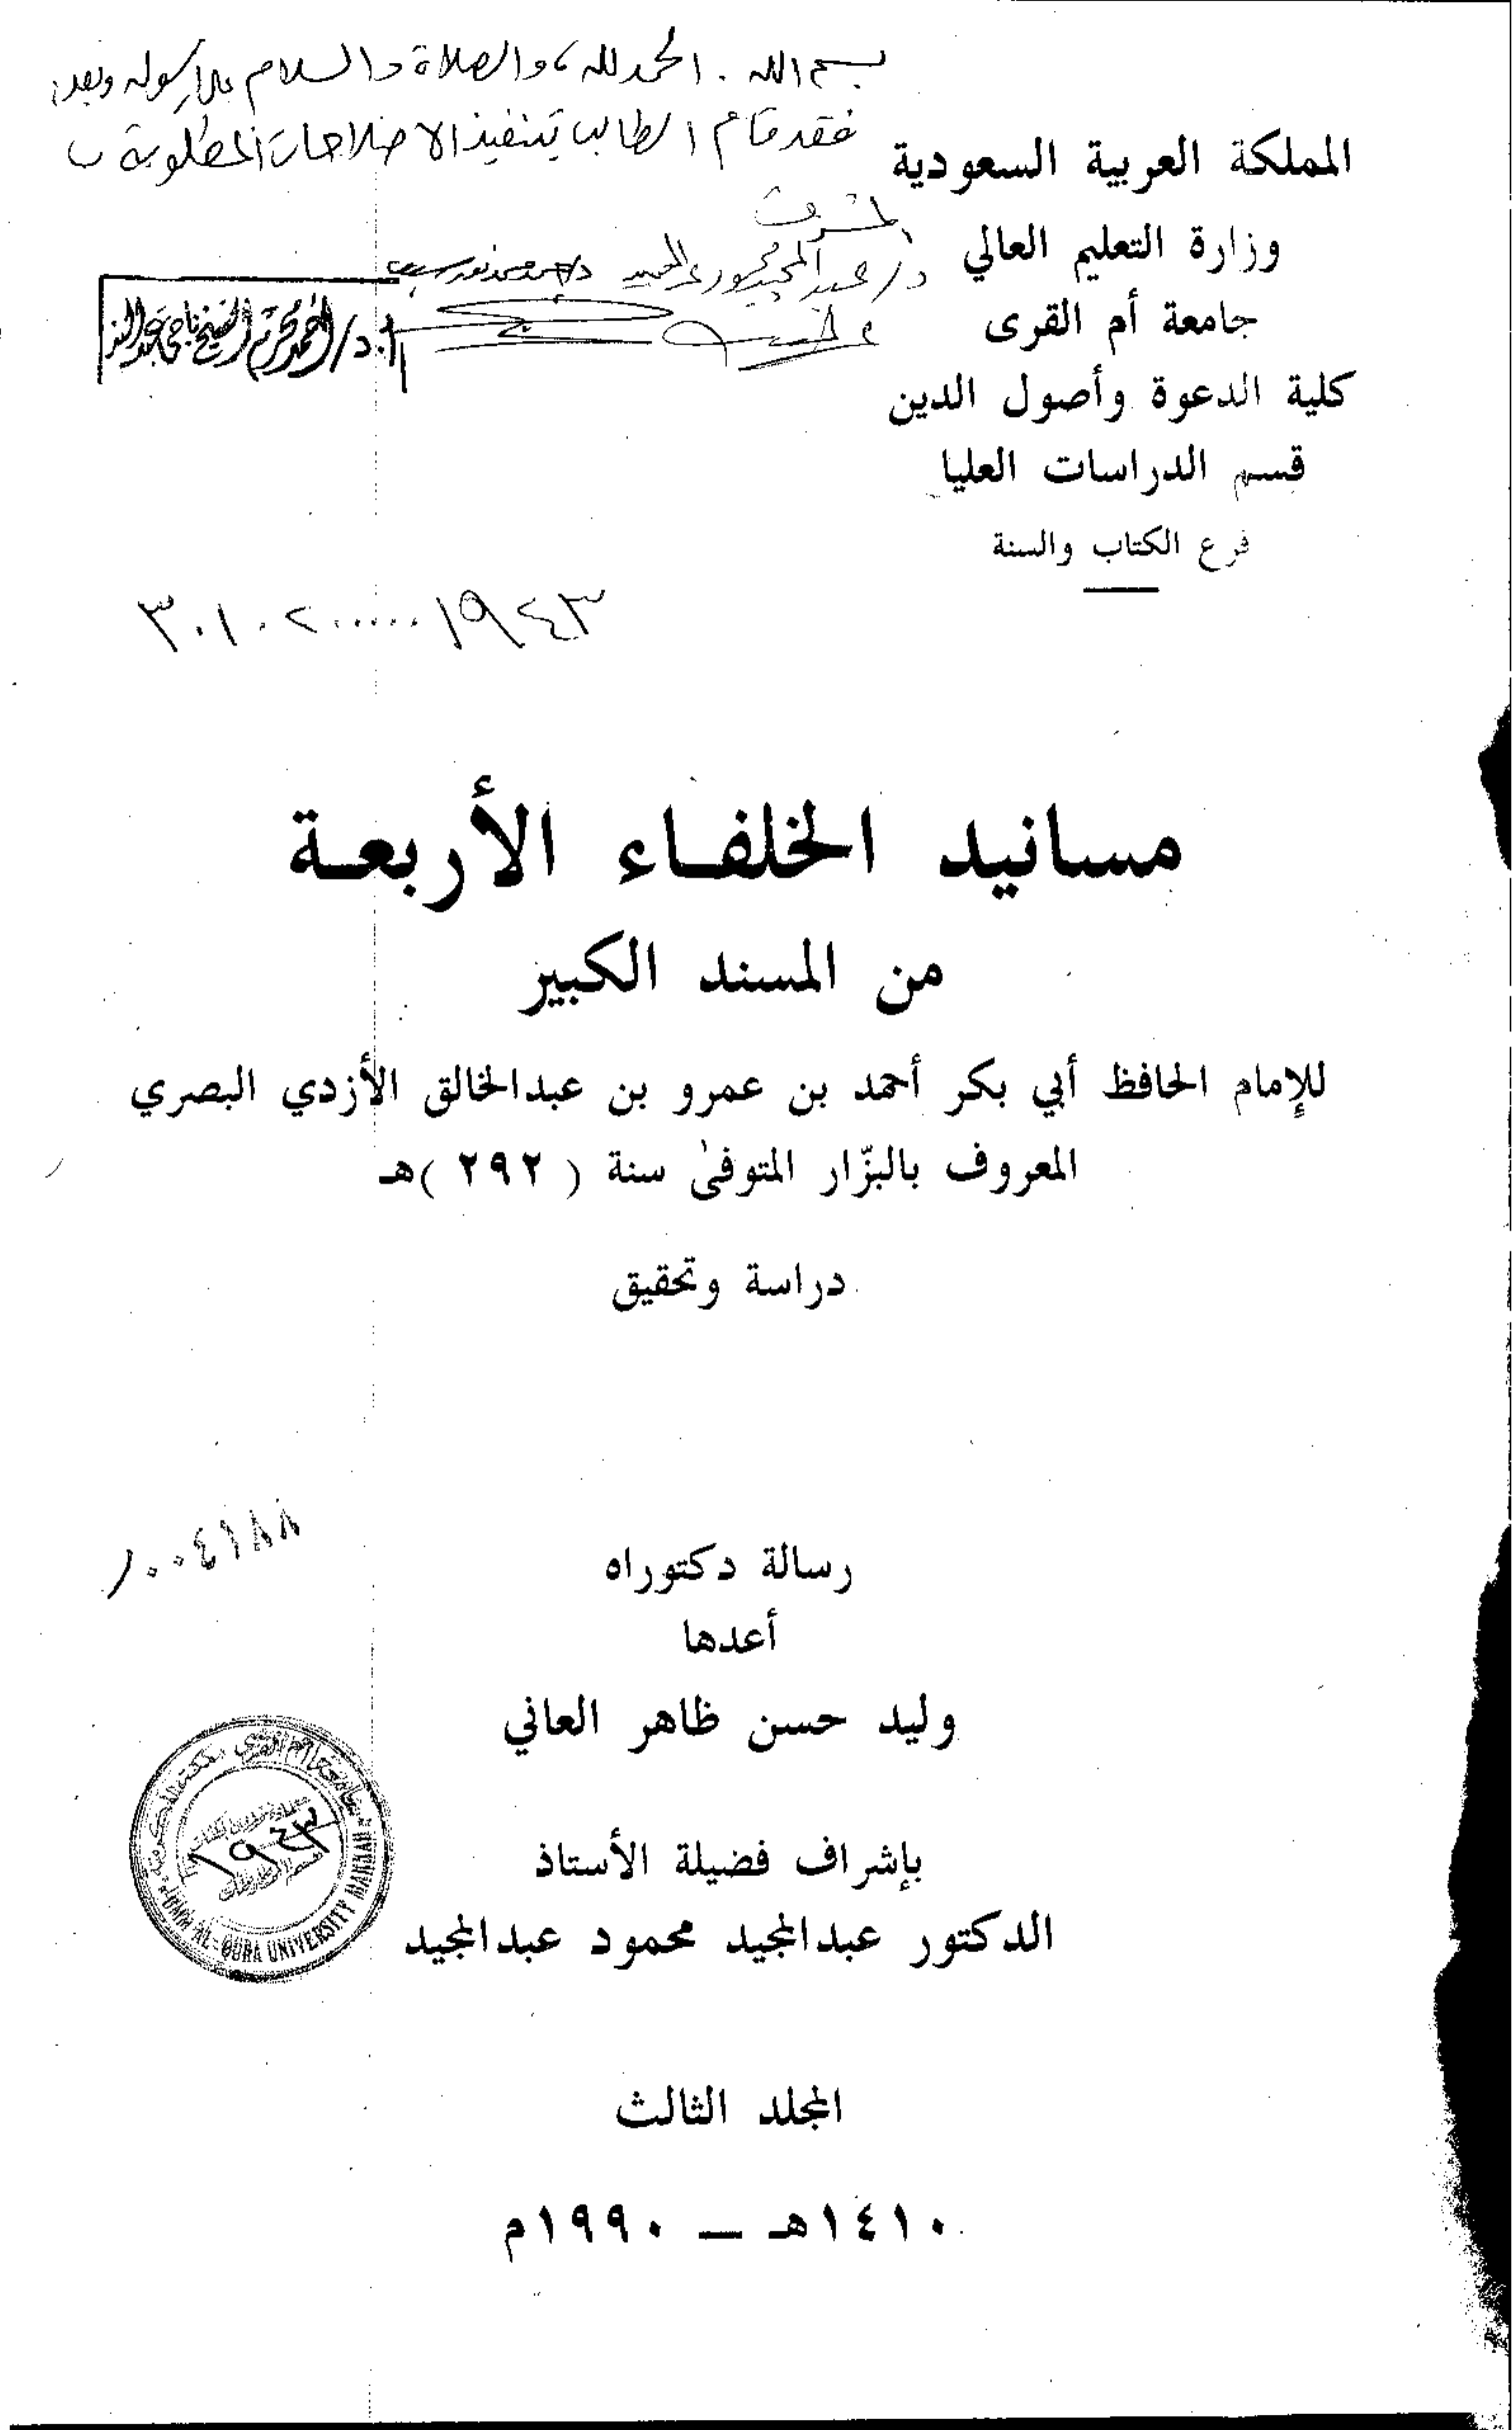 بسم الله . الحمد لله ، والصلاة والسلام على رسوله وبعد :
فقد قام الطالب بتنفيذ الاصلاحات المطلوبة
المملكة العربية السعودية
وزارة التعليم العالي
جامعة أم القرى
كلية الدعوة وأصول الدين
قسم الدراسات العليا
فرع الكتاب والسنة
المشرف
د/ عبد المجيد محمود عبد المجيد
٣٠١٠٢٠٠٠٠٠١٩٤٣
مسانيد الخلفاء الأربعة
من المسند الكبير
للإمام الحافظ أبي بكر أحمد بن عمرو بن عبدالخالق الأزدي البصري
المعروف بالبزّار المتوفىٰ سنة ( ٢٩٢ )هـ
دراسة وتحقيق
رسالة دكتوراه
أعدها
وليد حسن ظاهر العاني
١٠٠٤١٨٨
بإشراف فضيلة الأستاذ
الدكتور عبدالمجيد محمود عبدالمجيد
جامعة أم القرى مكة المكرمة
١٩٤٣
UMM AL-QURA UNIVERSITY MAKKAH
المجلد الثالث
١٤١٠هـ — ١٩٩٠م